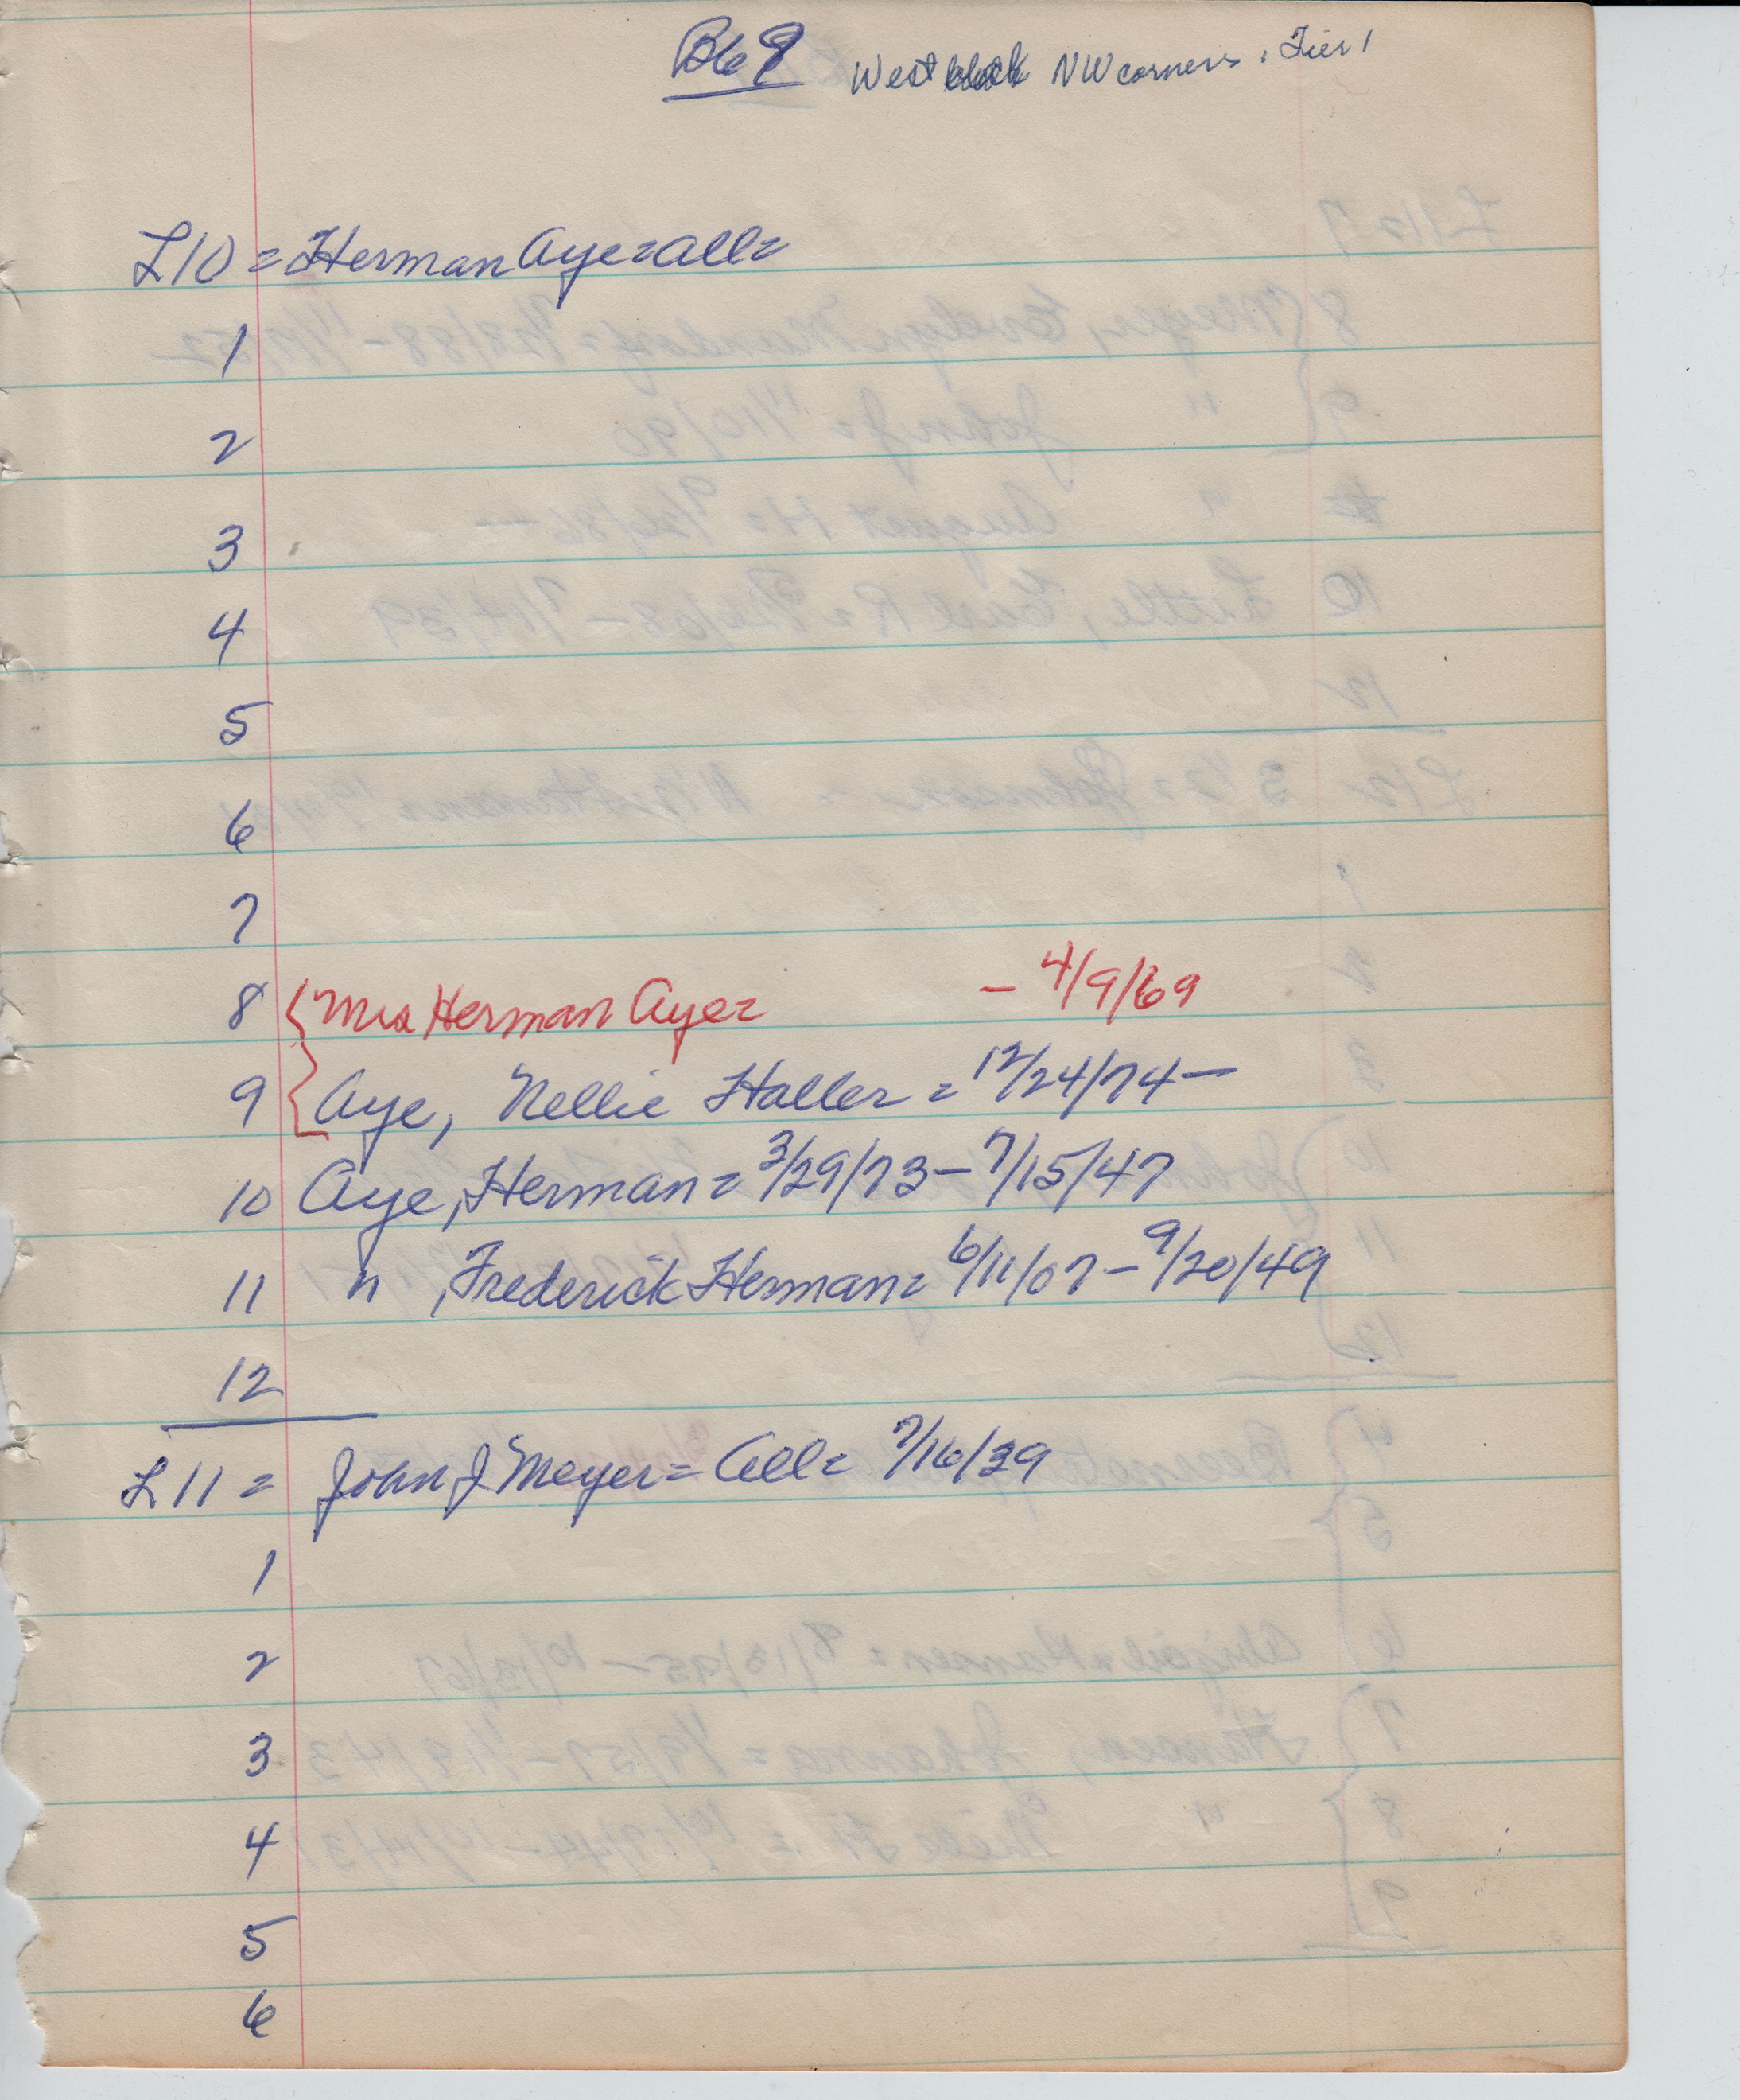 B69 West block NW corners, Tier 1
L10 = Herman Aye = all =
1
2
3
4
5
6
7
8 { Mrs Herman Aye = - 4/9/69
9 { Aye, Nellie Haller = 12/24/74 -
10 Aye, Herman = 3/29/73 - 7/15/47
11 " , Frederick Herman = 6/11/07 - 9/20/49
12
L11 = John J Meyer = All = 7/16/39
1
2
3
4
5
6